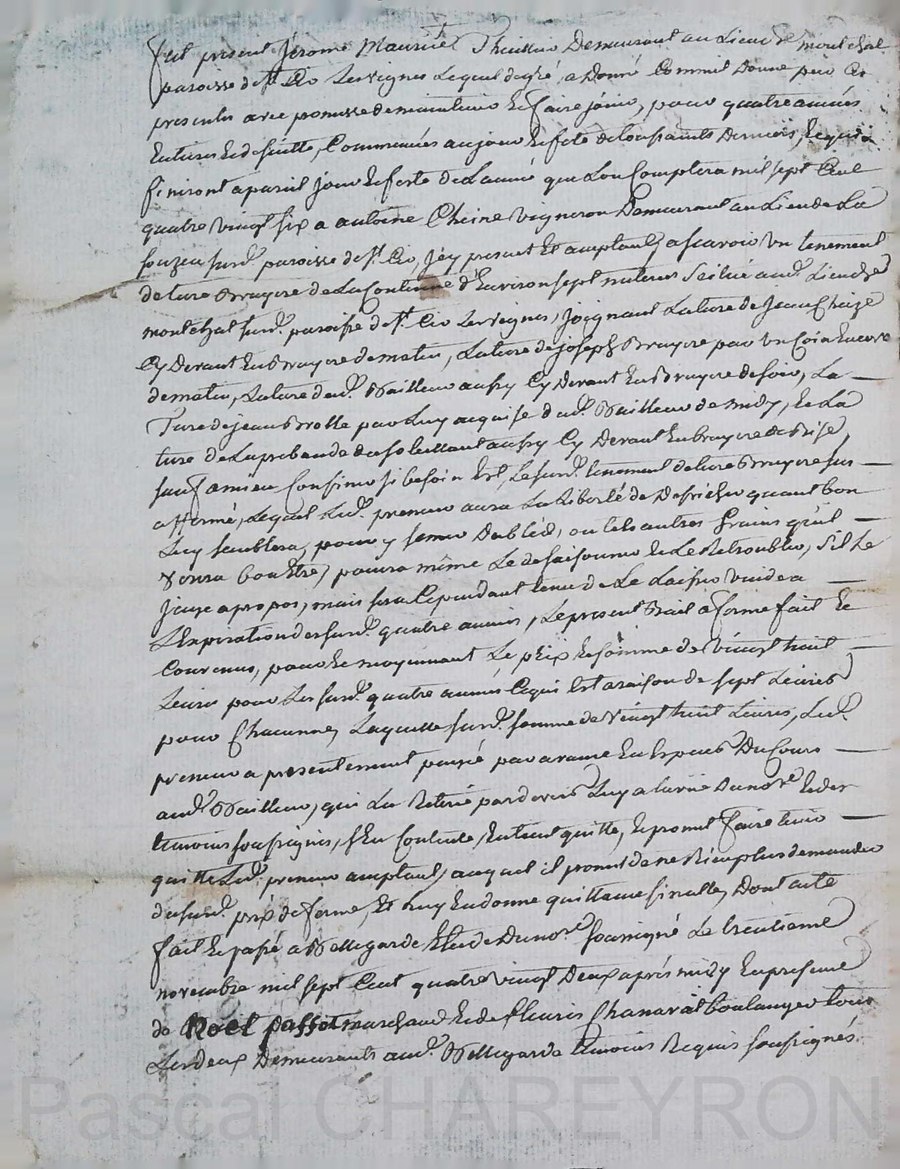 fut présent Jerome Maurice Theillin Demeurant au Lieu de montchal
paroisse de St Cir Les vignes Lequel de gré, a Donné Comme il Donne par Ces
presentes avec promesse de maintenir et faire jouir, pour quatre années
Entieres et de suitte, Commencées au jour et feste de toussaints Dernier, et qui
finiront a pareil jour et feste de L'année que L'on Comptera mil sept Cent
quatre vingt six a antoine Cheine vigneron Demeurant au Lieu de La
surd. paroisse de St. Cir, Icy present et aceptant, ascavoir un tenement
de terre Bruyere de La Contenue d'Environ sept mesures Scitué aud. Lieu de
montchal surd. paroisse de St. Cir Les vignes, joignant La terre de jean Chaize
Cy Devant En Bruyere de matin, La terre de joseph Bruyere par un Coin Encore
de matin, La terre dud. Bailleur aussy Cy Devant En Bruyere de soir, La
Terre de jean Brolle par Luy acquise dud. Bailleur de midy, et La
terre de La prebande aussy Cy Devant En bruyere de Bise,
sauf a mieux Confiner si besoin Est, Le surd. tenement de terre Bruyere sus
affermé, Lequel Led. preneur aura La Liberté de Defricher quand bon
Luy semblera, pour y semer Du bled, ou tels autres Grains qu'il
voura bon Estre, poura même Le desaisonner et Le Retroubler, s'il Le
juge apropos, mais sera Cependant tenu de Le Laisser vuide a
L'Expiration des surd. quatre années, Le present Bail a ferme fait et
Convenu, pour et moyennant Le prix et somme de vingt huit
Livres pour Les surd. quatre années Ce qui Est a raison de sept Livres
pour Chacunne, Laquelle surd. somme de vingt huit Livres, Led.
preneur a presentement payé par avance En Especes Du Cours
aud. Bailleur, qui La Retirée pardevers Luy a la vüe Du nore. et des
temoins soussignés, s'En Contente, En tient quitte, et promet faire tenir
quitte Led. preneur aceptant, auquel il promet de ne Rien plus demander
du surd. prix de ferme, Et Luy En donne quittance finalle, Dont acte
fait et passé a Bellegarde Etude Du nore. soussigné Le trentieme
novembre mil sept Cent quatre vingt Deux après midy En presence
de Noël passot marchand et de fleuris Chanavat boulanger tous
Les deux Demeurants aud. Bellegarde temoins Requis soussignés.
Pascal CHAREYRON